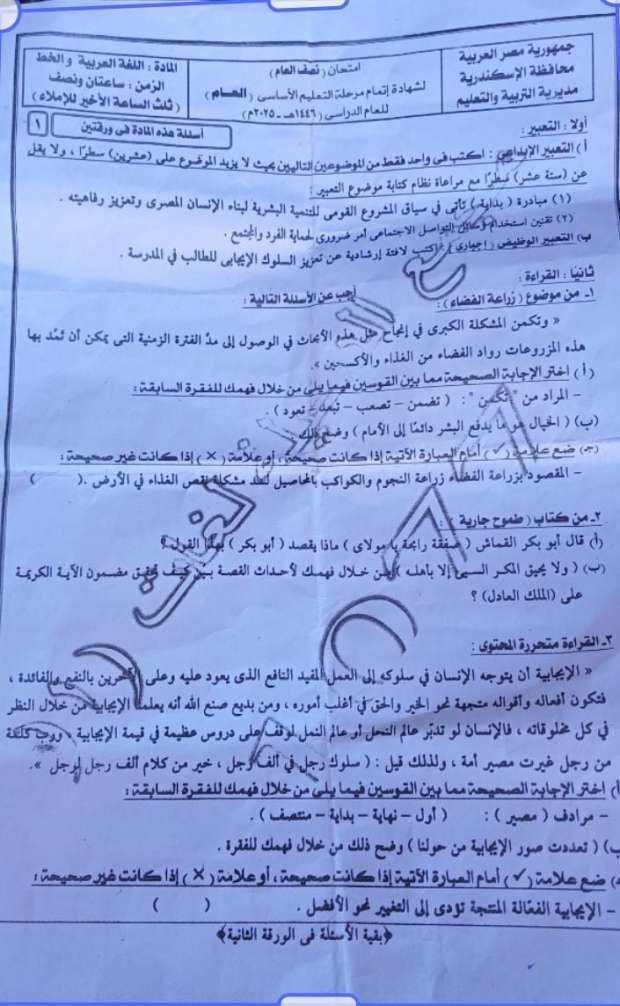 جمهورية مصر العربية
محافظة الإسكندرية
مديرية التربية والتعليم
امتحان (نصف العام)
لشهادة إتمام مرحلة التعليم الأساسى (العـــام)
للعام الدراسى (١٤٤٦هـ - ٢٠٢٥م)
المادة : اللغة العربية والخط
الزمن : ساعتان ونصف
(ثلث الساعة الأخير للإملاء)
أسئلة هذه المادة فى ورقتين
١
أولا : التعبير :
أ ) التعبير الإبداعى : اكتب فى واحد فقط من الموضوعين التاليين بحيث لا يزيد الموضوع على (عشرين) سطرًا ، ولا يقل
عن (ستة عشر) سطرًا مع مراعاة نظام كتابة موضوع التعبير :
(١) مبادرة ( بداية ) تأتى في سياق المشروع القومى للتنمية البشرية لبناء الإنسان المصرى وتعزيز رفاهيته .
(٢) تقنين استخدام وسائل التواصل الاجتماعى أمر ضرورى لحماية الفرد والمجتمع .
ب) التعبير الوظيفى (إجبارى) : اكتب لافتة إرشادية عن تعزيز السلوك الإيجابى للطالب في المدرسة .
ثانيًا : القراءة :
أجب عن الأسئلة التالية :
١ـ من موضوع ( زراعة الفضاء ) :
« وتكمن المشكلة الكبرى في إنجاح مثل هذه الأبحاث في الوصول إلى مدّ الفترة الزمنية التى يمكن أن تُمد بها
هذه المزروعات رواد الفضاء من الغذاء والأكسجين ».
( أ ) اختر الإجابة الصحيحة مما بين القوسين فيما يلى من خلال فهمك للفقرة السابقة :
- المراد من " تكمن " : ( تضمن – تصعب – تبعد – تعود ) .
(ب) ( الخيال هو ما يدفع البشر دائمًا إلى الأمام ) وضح ذلك
(جـ) ضع علامة ( ✓ ) أمام العبارة الآتية إذا كانت صحيحة ، أو علامة ( × ) إذا كانت غير صحيحة :
- المقصود بزراعة الفضاء زراعة النجوم والكواكب بالمحاصيل لسد مشكلة نقص الغذاء في الأرض . ( )
٢ـ من كتاب ( طموح جارية ) :
(أ) قال أبو بكر القماش ( صفقة رابحة يا مولاى ) ماذا يقصد ( أبو بكر ) بهذا القول ؟
(ب) ( ولا يحيق المكر السيئ إلا بأهله ) من خلال فهمك لأحداث القصة بين كيف تحقق مضمون الآية الكريمة
على (الملك العادل) ؟
٣ـ القراءة متحررة المحتوى :
« الإيجابية أن يتوجه الإنسان في سلوكه إلى العمل المفيد النافع الذى يعود عليه وعلى الآخرين بالنفع والفائدة ،
فتكون أفعاله وأقواله متجهة نحو الخير والحق في أغلب أموره ، ومن بديع صنع الله أنه يعلمنا الإيجابية من خلال النظر
في كل مخلوقاته ، فالإنسان لو تدبّر عالم النحل أو عالم النمل لوقف على دروس عظيمة في قيمة الإيجابية ، ورب كلمة
من رجل غيرت مصير أمة ، ولذلك قيل : ( سلوك رجل في ألف رجل ، خير من كلام ألف رجل لرجل ».
أ) اختر الإجابة الصحيحة مما بين القوسين فيما يلى من خلال فهمك للفقرة السابقة :
- مرادف ( مصير ) : ( أول – نهاية – بداية – منتصف ) .
ب) ( تعددت صور الإيجابية من حولنا ) وضح ذلك من خلال فهمك للفقرة .
ضع علامة ( ✓ ) أمام العبارة الآتية إذا كانت صحيحة ، أو علامة ( × ) إذا كانت غير صحيحة :
- الإيجابية الفعّالة المنتجة تؤدى إلى التغيير نحو الأفضل . ( )
﴿بقية الأسئلة فى الورقة الثانية﴾